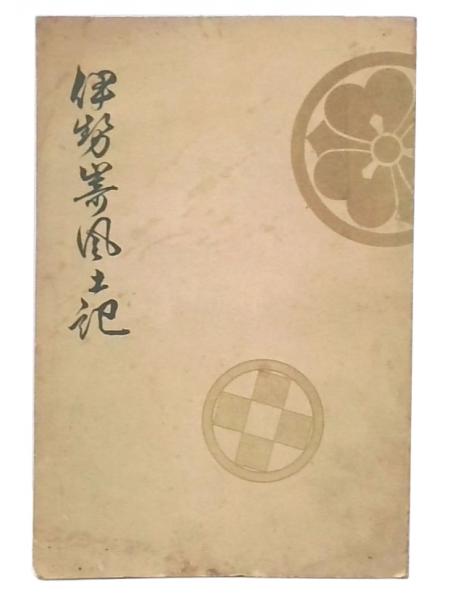 伊勢嵜風土記